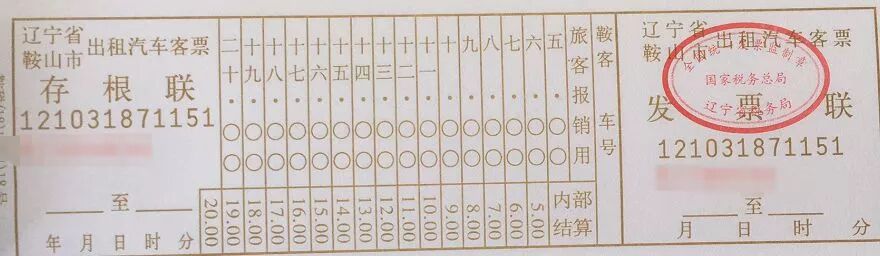 辽宁省
鞍山市
出租汽车客票
存根联
121031871151
至
年 月 日 时 分
二十·〇〇
十九·〇〇
十八·〇〇
十七·〇〇
十六·〇〇
十五·〇〇
十四·〇〇
十三·〇〇
十二·〇〇
十一·〇〇
九·〇〇
八·〇〇
七·〇〇
六·〇〇
五·〇〇
旅客报销用
20.00
19.00
18.00
17.00
16.00
15.00
14.00
13.00
12.00
11.00
10.00
9.00
8.00
7.00
6.00
5.00
内部
结算
鞍客
车号
辽宁省
鞍山市
出租汽车客票
全国统一发票监制章
国家税务总局
辽宁省税务局
发票联
121031871151
至
月 日 时 分